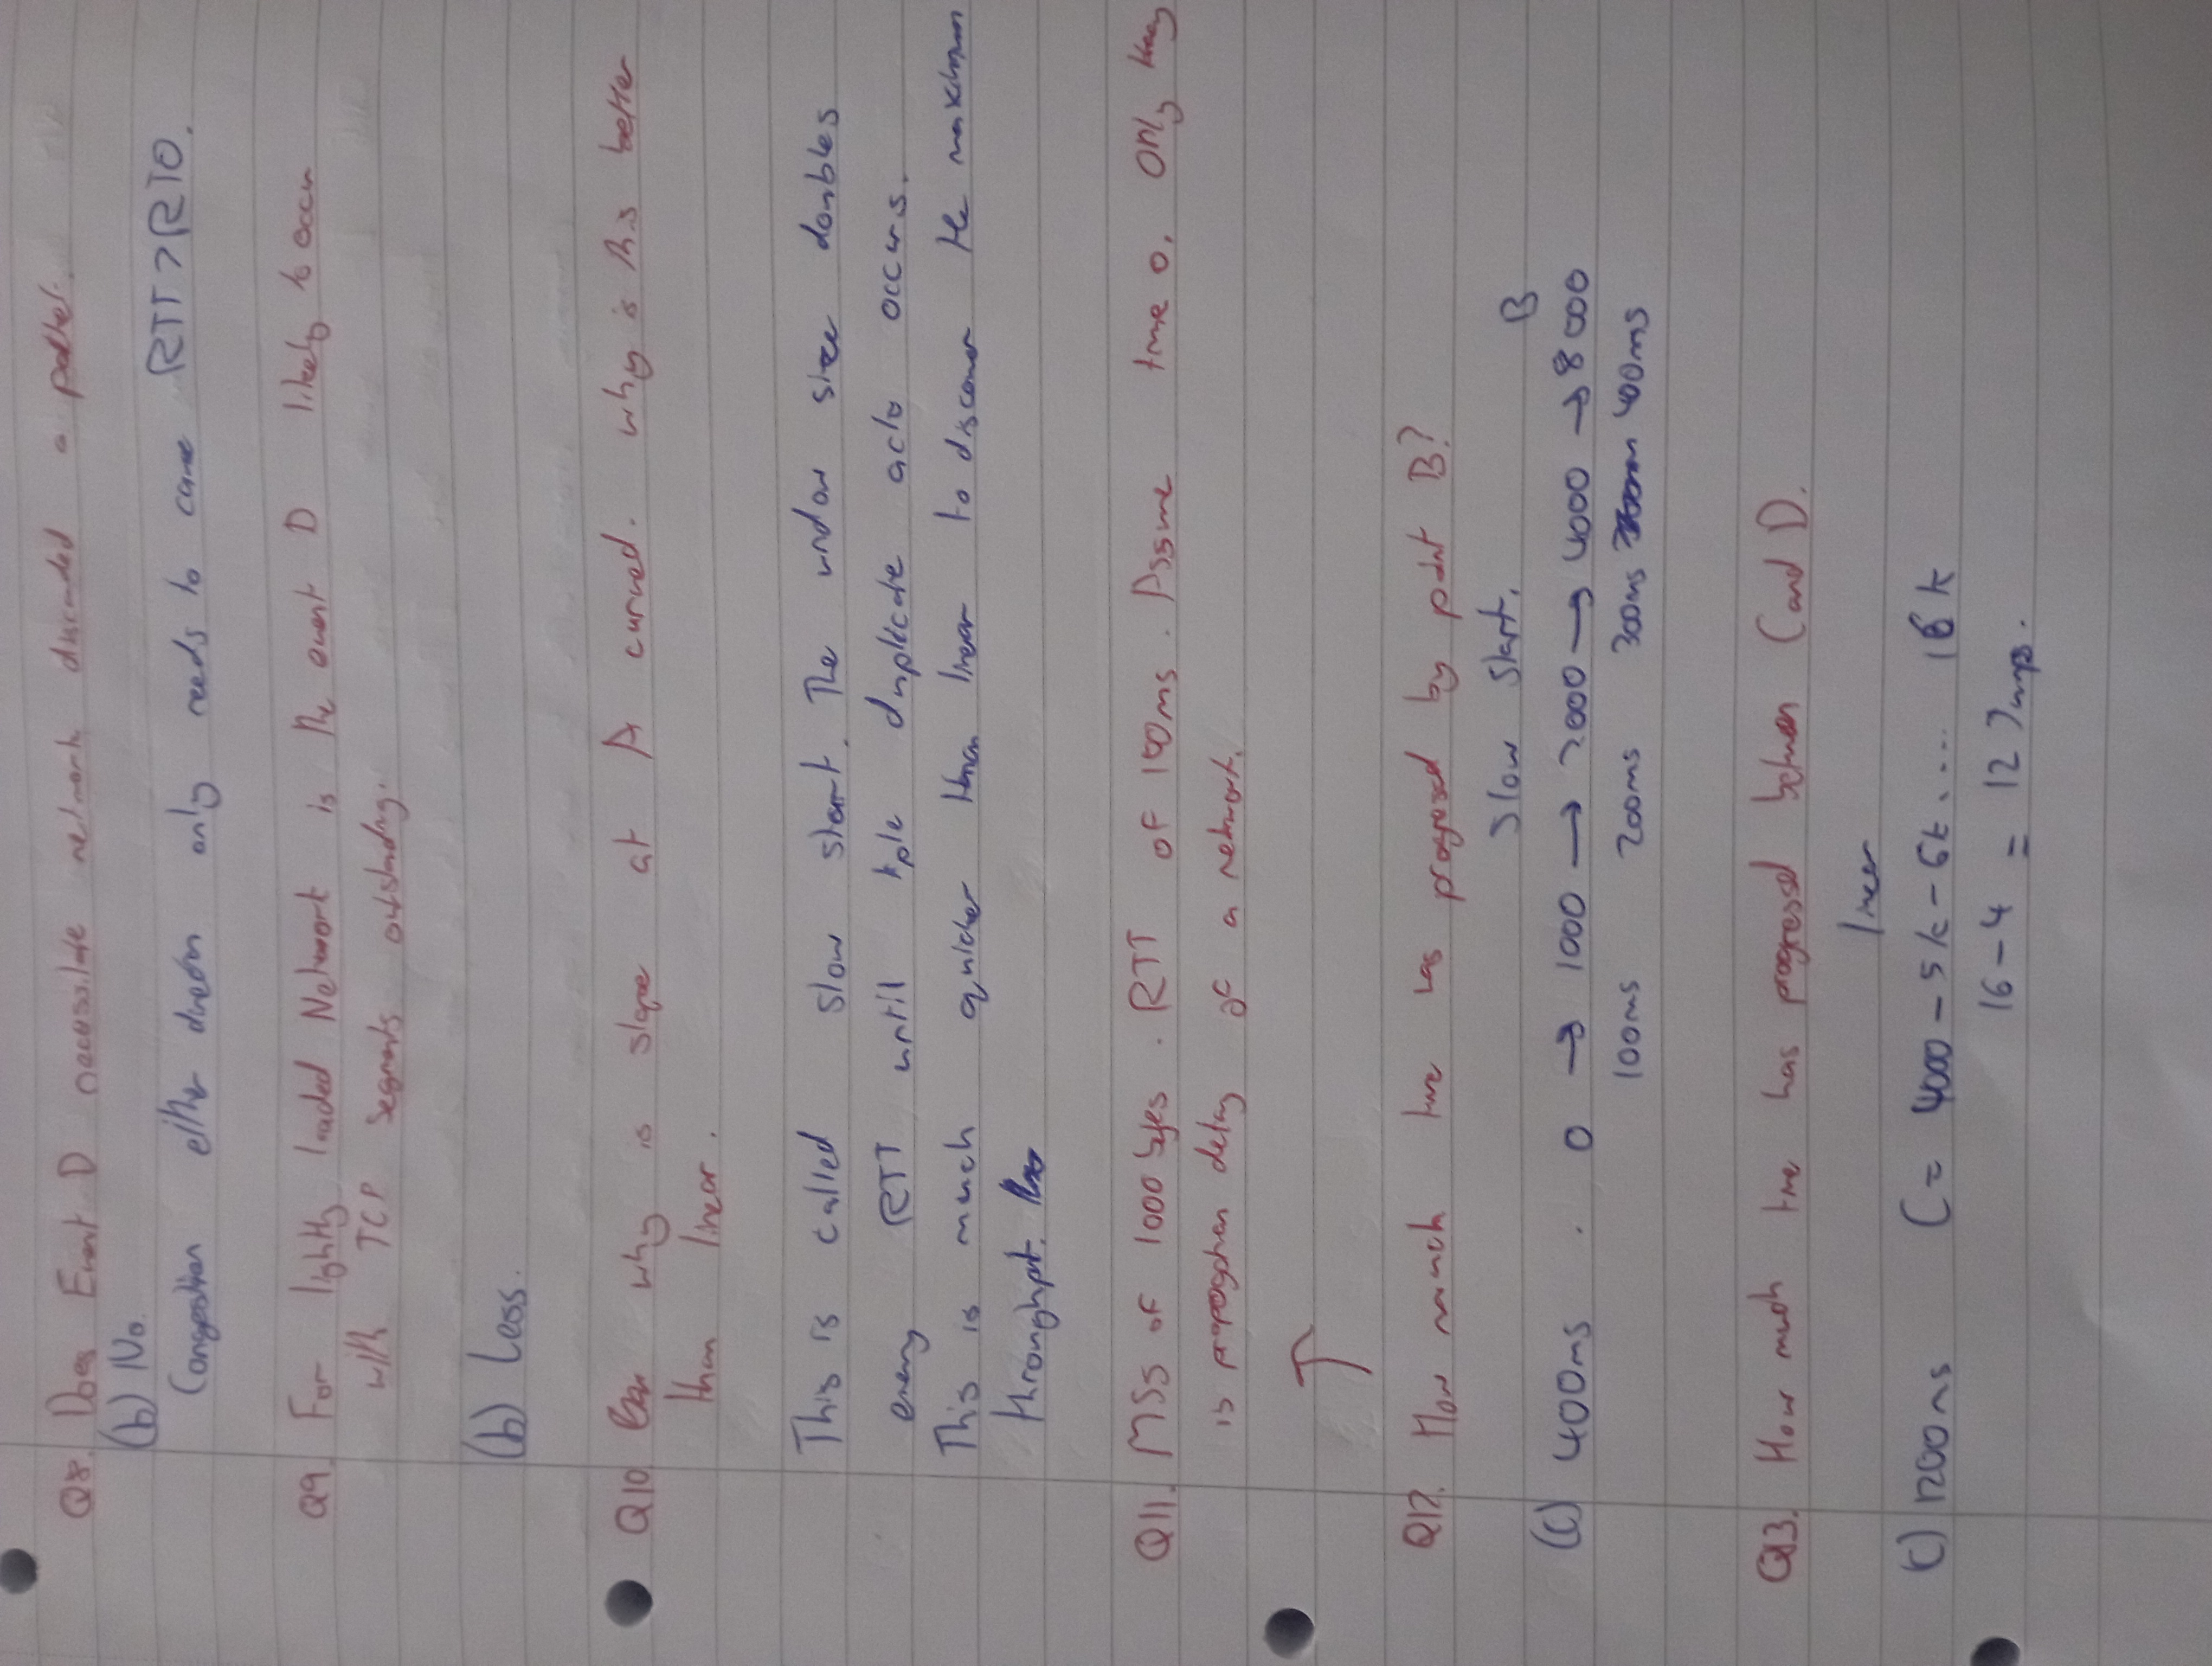 Q8. Does Event D necessitate network discarded a packet.
(b) No.
Congestion either direction only needs to cause RTT > RTO.
Q9. For lightly loaded Network is the event D likely to occur
with TCP segments outstanding.
(b) Less.
Q10 why is slope at A curved. why is this better
than linear.
This is called slow start. The window size doubles
every RTT until triple duplicate acks occurs.
This is much quicker than linear to discover the maximum
throughput.
Q11. MSS of 1000 bytes. RTT of 100ms. Assume time 0. Only
is propogation delay of a network.
↑
Q12. How much time has progressed by point B?
Slow Start. B
(C) 400ms . 0 → 1000 → 2000 → 4000 → 8000
100ms 200ms 300ms 400ms
Q13. How much time has progressed between C and D.
linear
C) 1200ms C = 4000 - 5k - 6k .... 16k
16 - 4 = 12 Jumps.